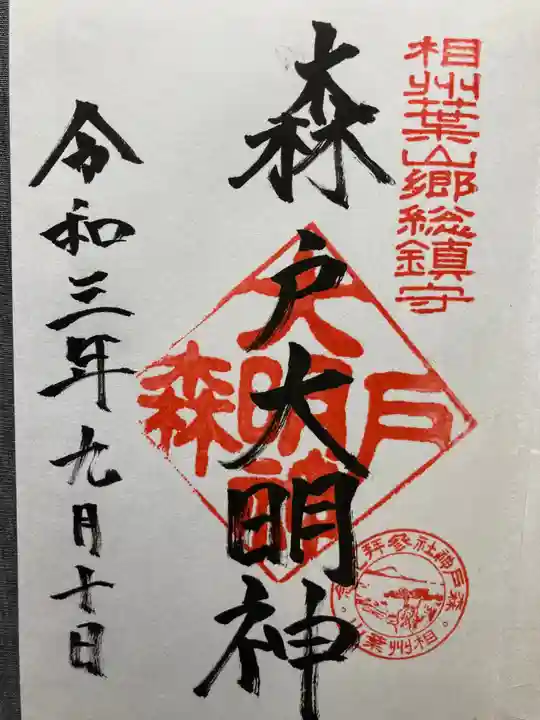 相州葉山郷総鎮守
森戸大明神
大明神
森
戸
森戸神社参拝記念
相州葉山
令和三年九月十日